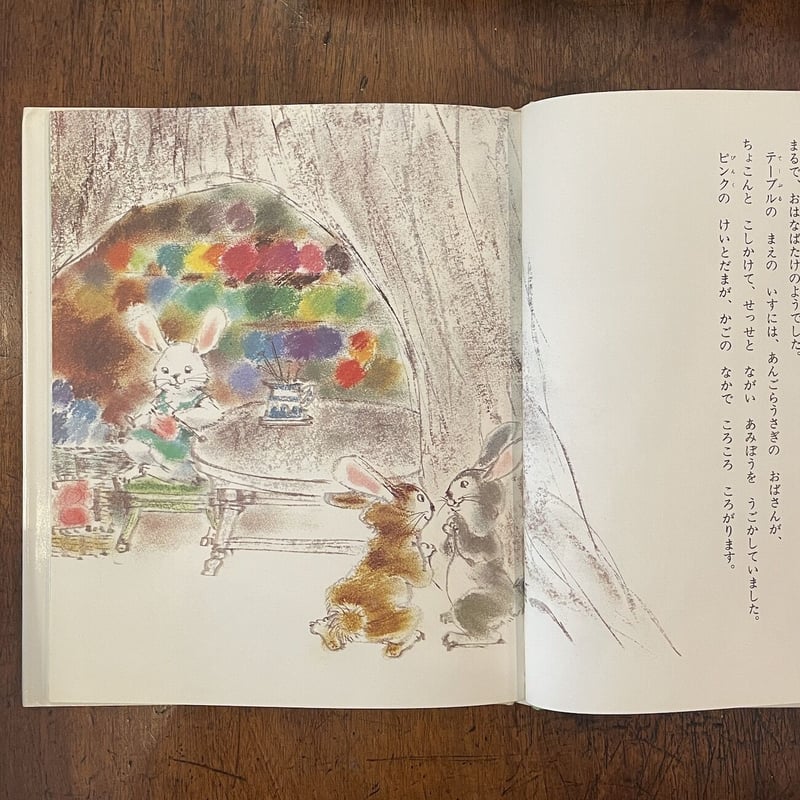 まるで、おはなばたけのようでした。
テーブルの まえの いすには、あんごらうさぎの おばさんが、
ちょこんと こしかけて、せっせと ながい あみぼうを うごかしていました。
ピンクの けいとだまが、かごの なかで ころころ ころがります。